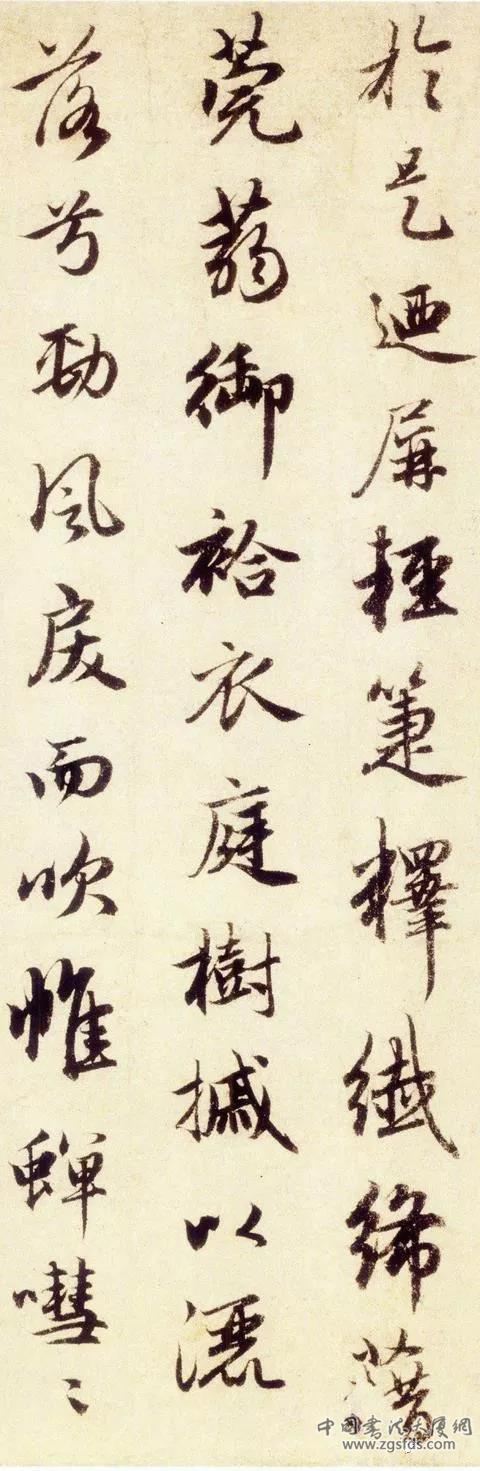 於是迺屏輕箑釋纖絺藉
莞蒻御袷衣庭樹摵以灑
落兮勁風戾而吹帷蟬嘒〻
中國書法大厦網
www.zgsfds.com